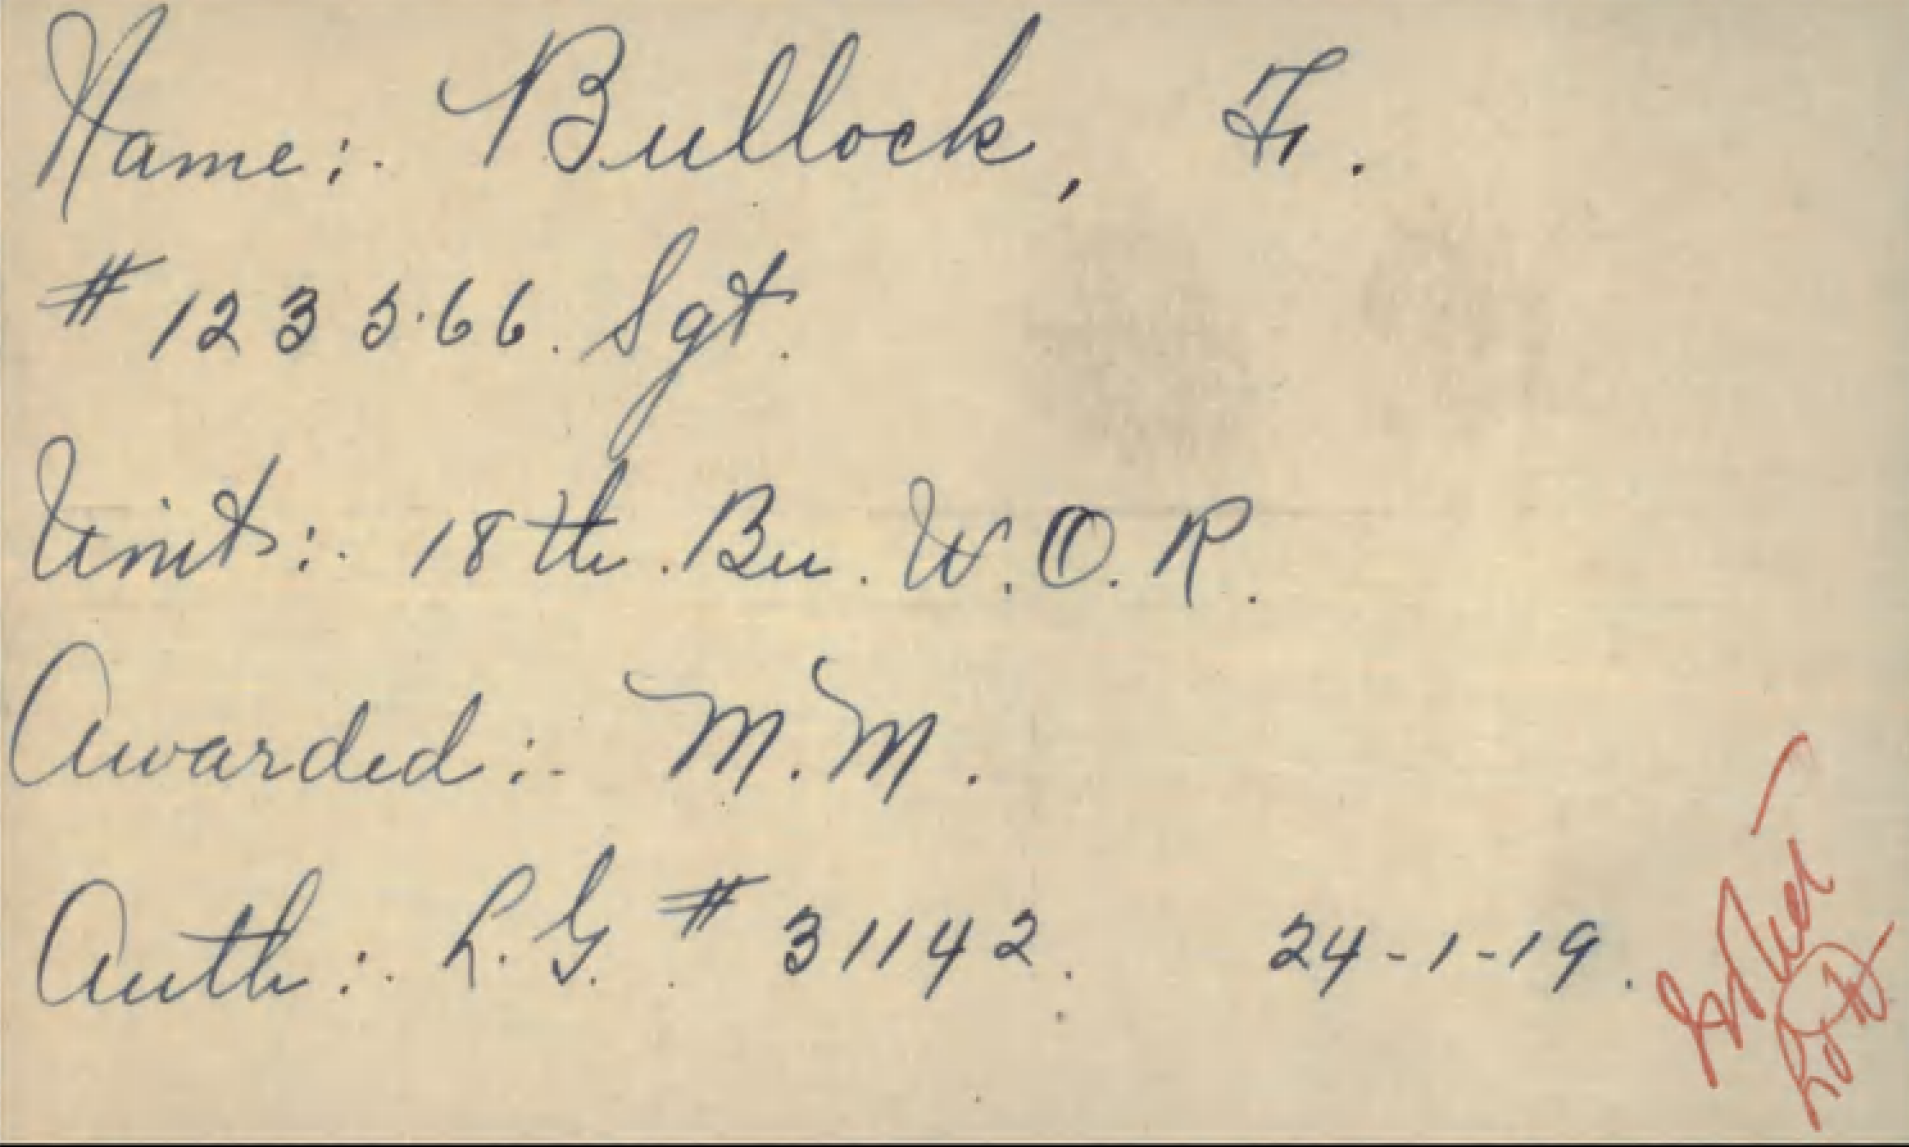 Name:- Bullock, F.
# 123566. Sgt.
Unit:- 18th. Bn. W.O.R.
Awarded:- M.M.
Auth:- L.G. # 31142. 24-1-19.